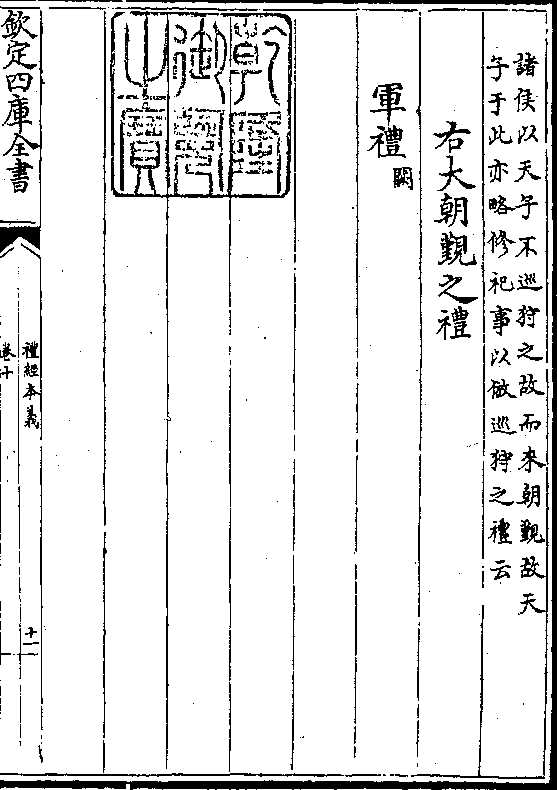 諸侯以天子不巡狩之故而來朝覲故天
子于此亦略修祀事以倣巡狩之禮云
右大朝覲之禮
軍禮闕
乾隆
御覽
之寶
欽定四庫全書
禮經本義
卷十
十一